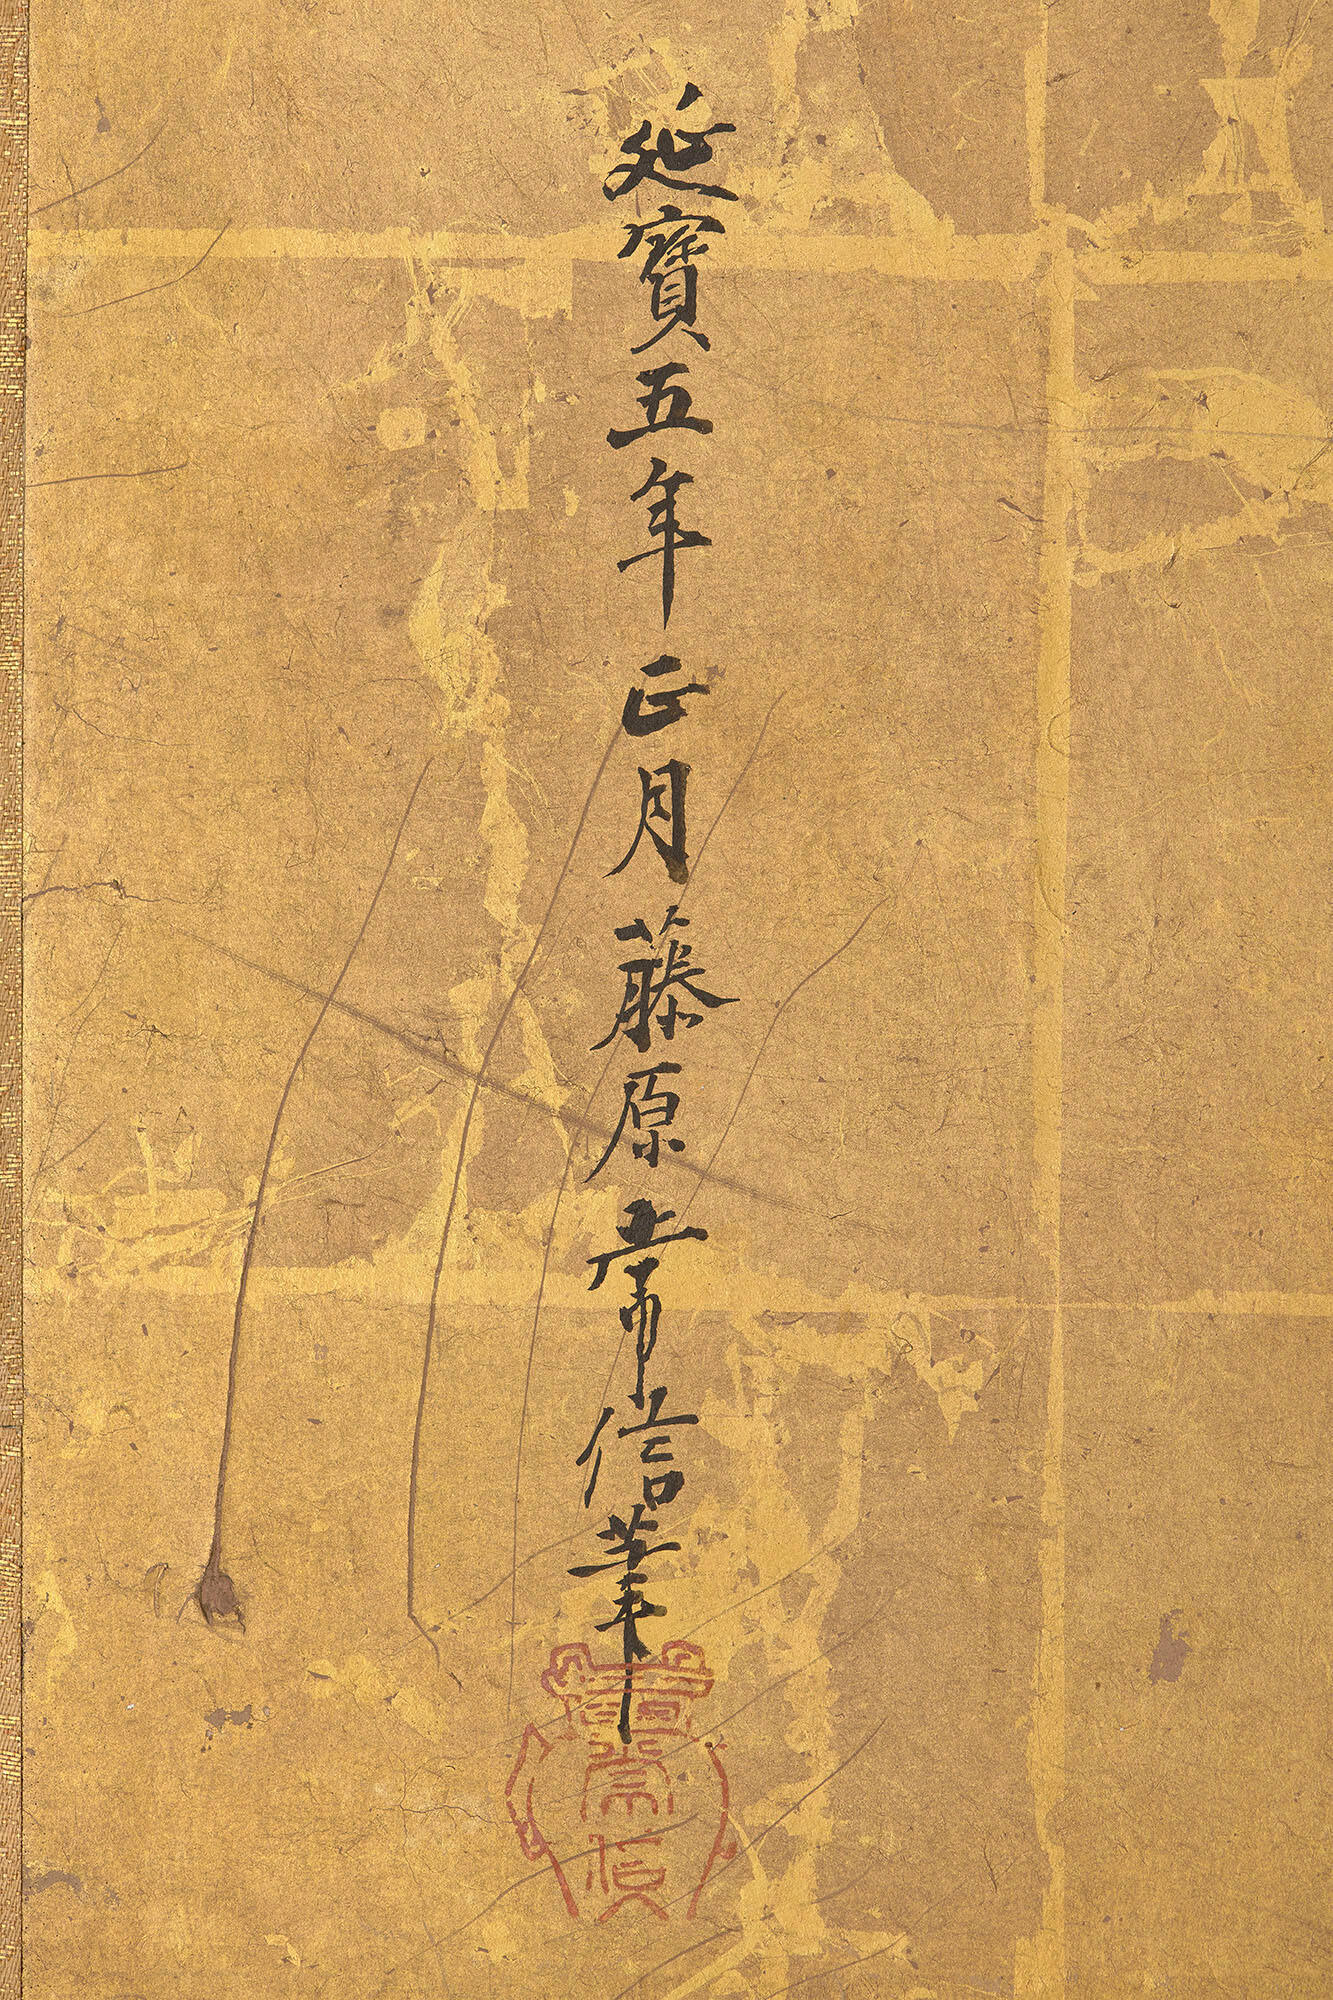 延寶五年正月藤原常信筆